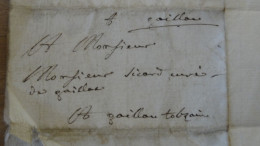 gaillac
A Monsieur
Monsieur sicard curé
de gaillac
A gaillac